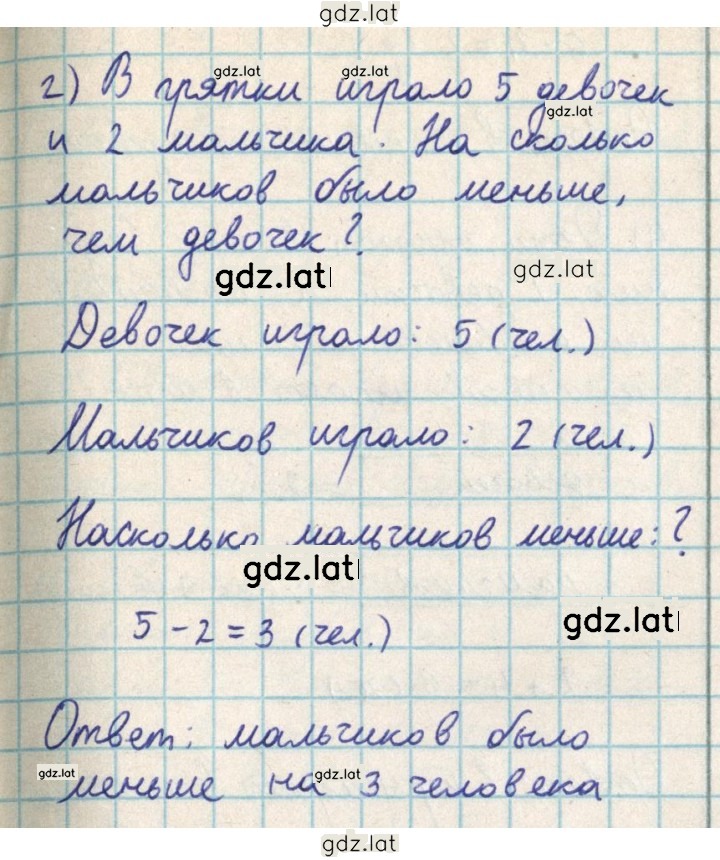 gdz.lat
gdz.lat gdz.lat
2) В прятки играло 5 девочек
gdz.lat
и 2 мальчика. На сколько
мальчиков было меньше,
чем девочек?
gdz.lat gdz.lat
Девочек играло: 5 (чел.)
Мальчиков играло: 2 (чел.)
Насколько мальчиков меньше: ?
gdz.lat
gdz.lat
5 - 2 = 3 (чел.)
Ответ: мальчиков было
gdz.lat gdz.lat
меньше на 3 человека
gdz.lat